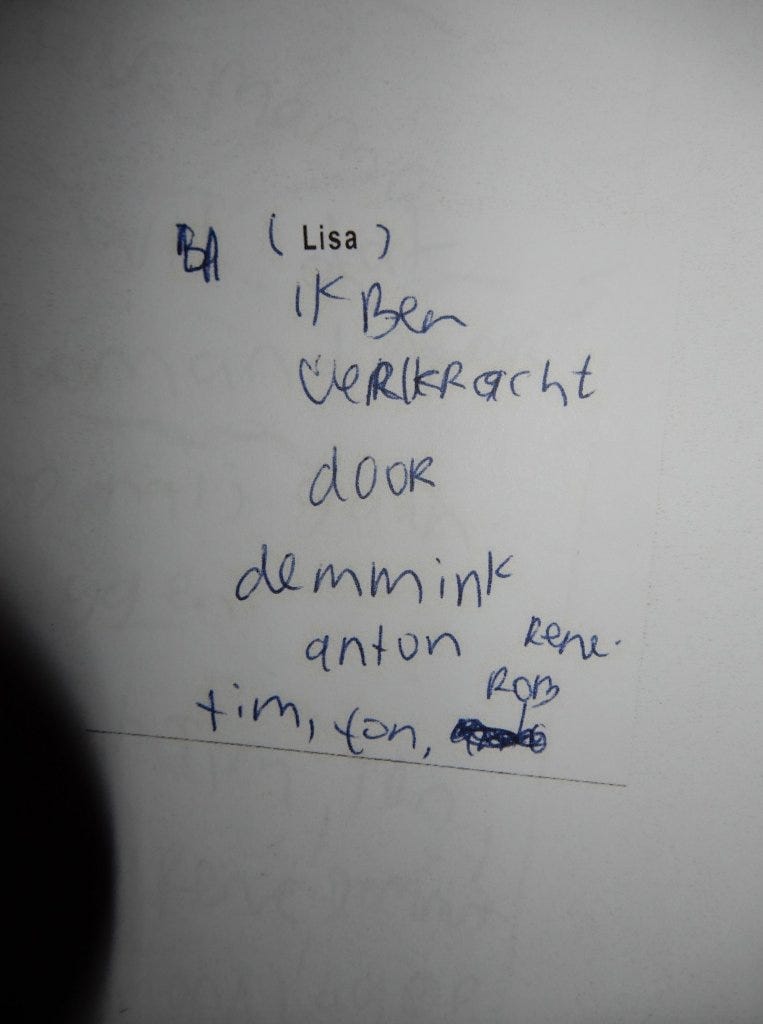 BA (Lisa)
ik Ben
verkracht
door
demmink
anton Rene.
Rob
tim, ton,